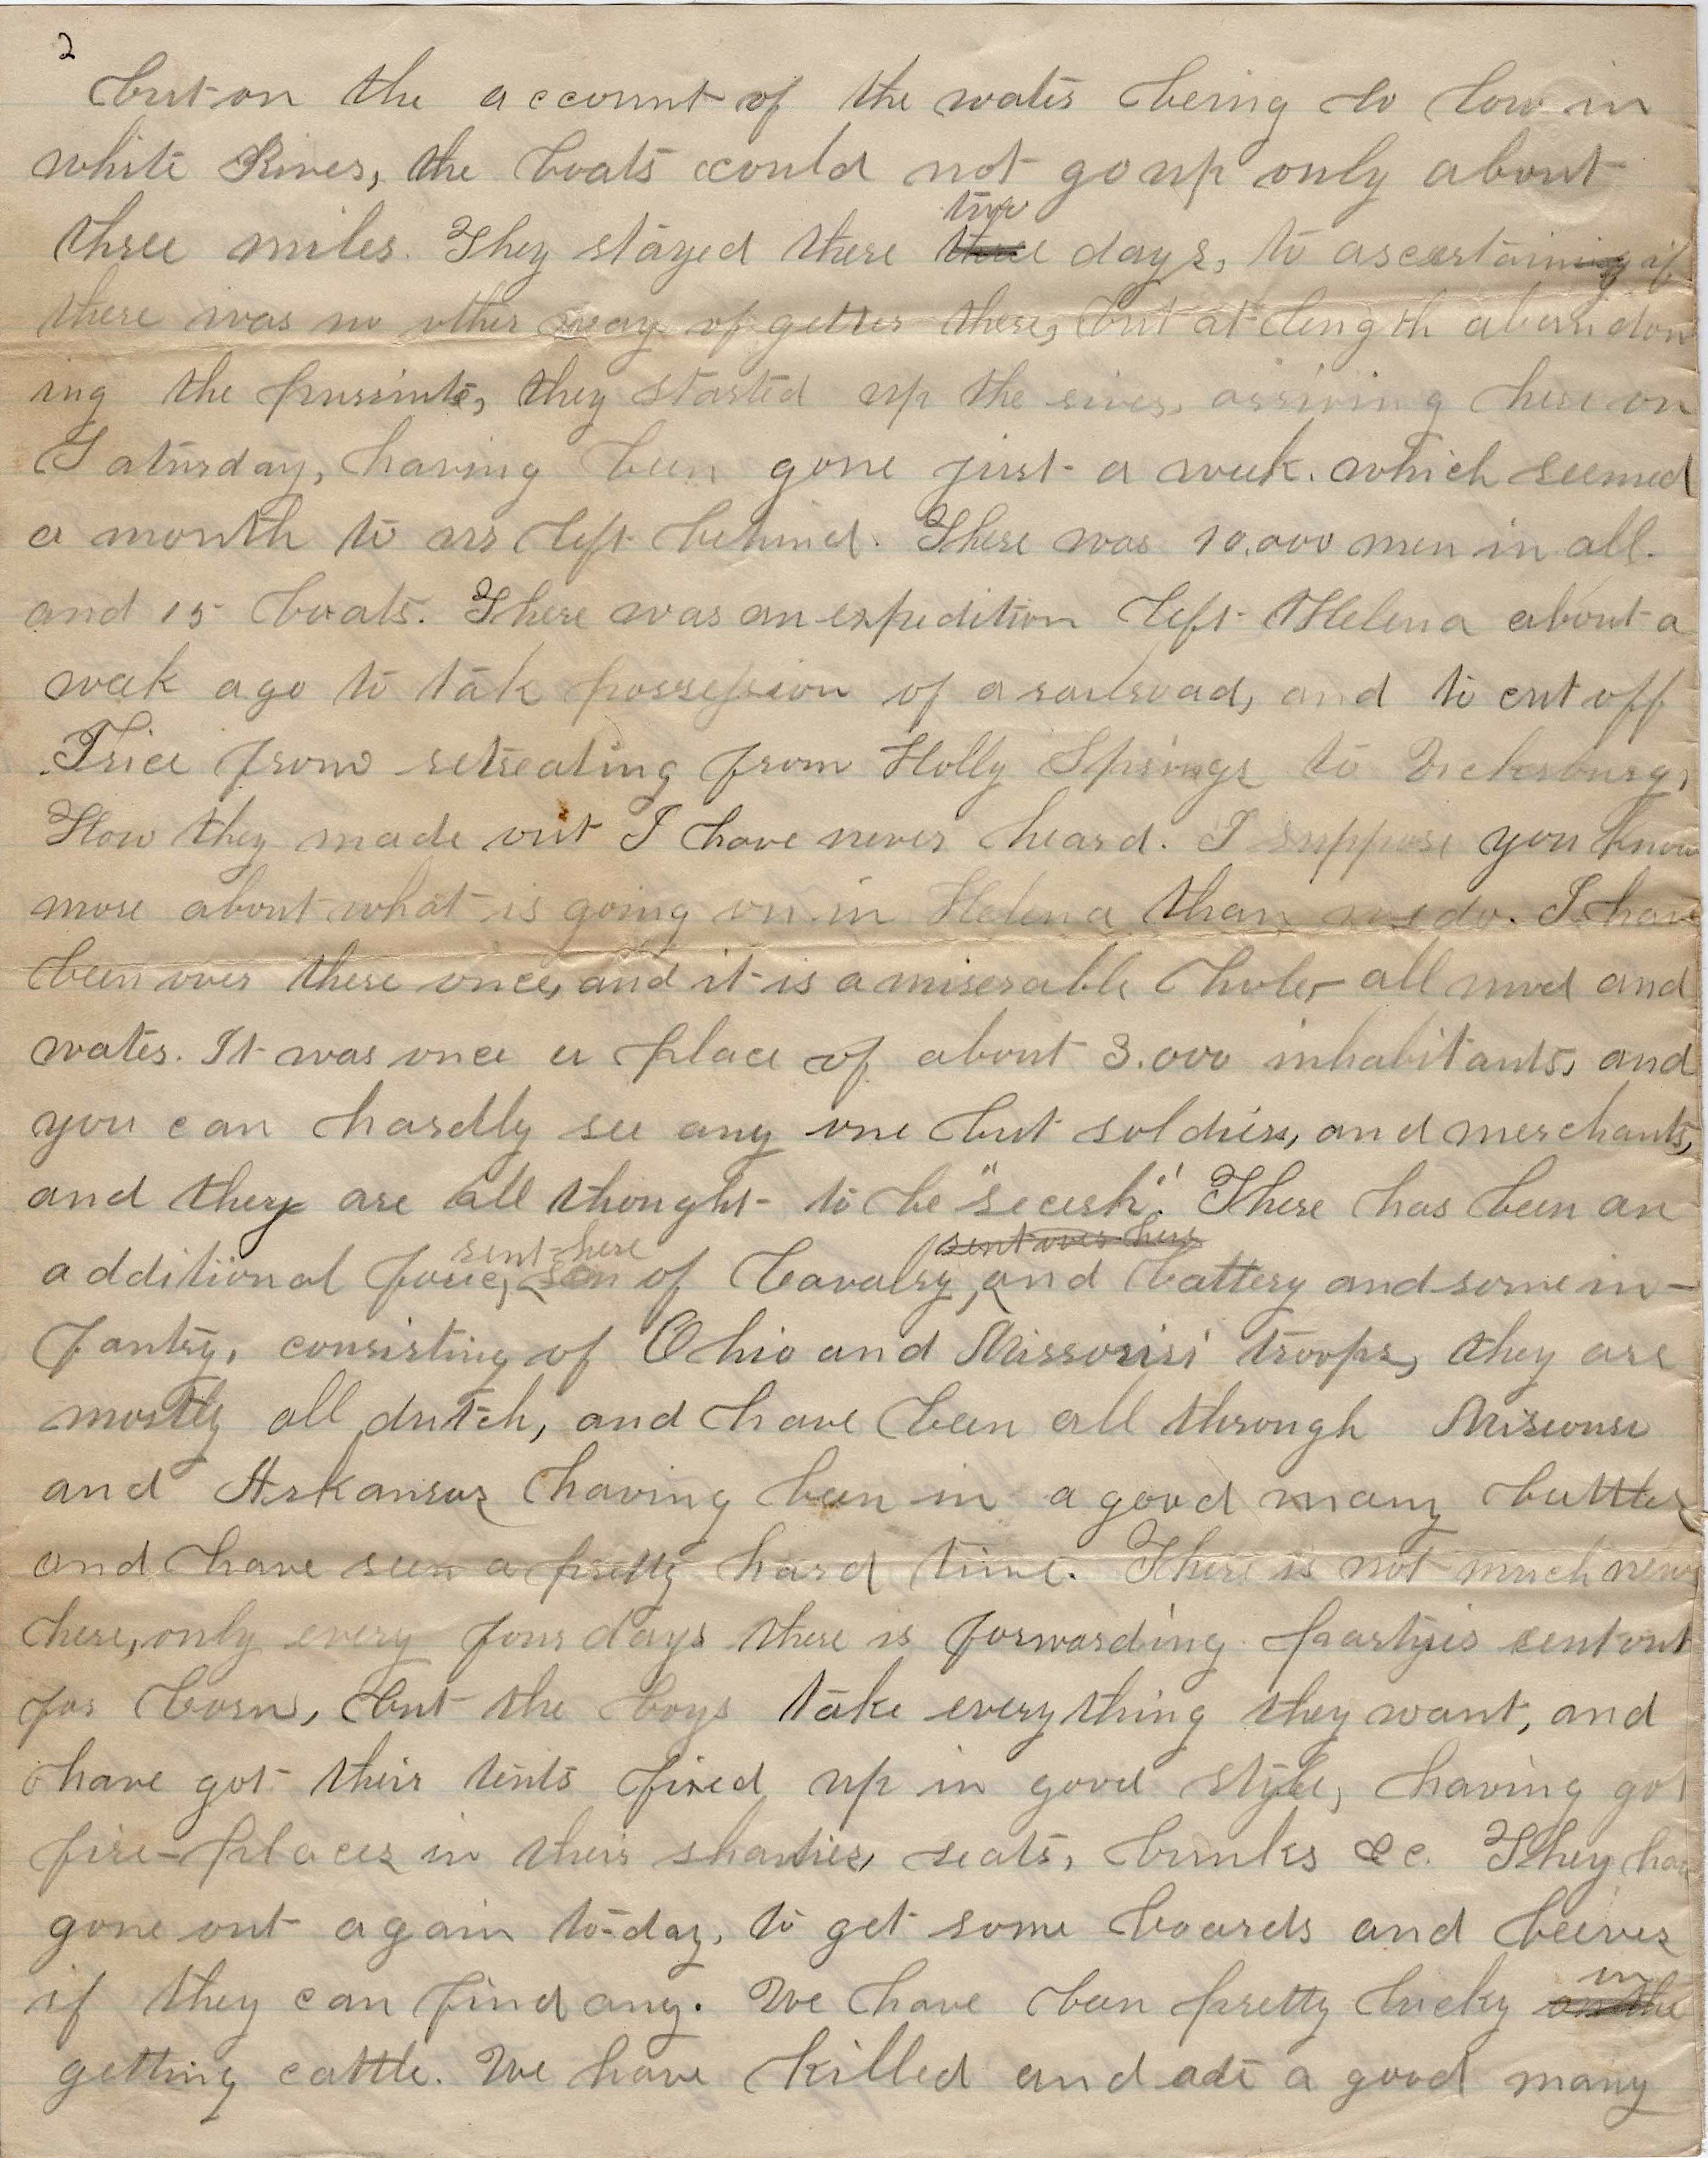 2
but on the account of the water being so low in
white River, the boats could not go up only about
two
three miles. They stayed there three days, to ascertaining if
there was no other way of getter there, but at length abandon
ing the pursuite, they started up the river, arriving here on
Saturday, having been gone just a week. which seemed
a month to us left behind. There was 10.000 men in all.
and 15 boats. There was an expedition left Helena about a
week ago to tak possession of a railroad, and to cut off
Price from retreating from Holly Springs to Vicksburg,
How they made out I have never heard. I suppose you know
more about what is going on in Helena than we do. I have
been over there once, and it is a miserable hole, all mud and
water. It was once a place of about 3.000 inhabitants, and
you can hardly see any one but soldiers, and merchants,
and they are all thought to be "secesh". There has been an
sent here sent over here
additional force, of Cavalry, and battery and some in-
fantry, consisting of Ohio and Missouri troops, they are
mostly all dutch, and have been all through Missouri
and Arkansas having been in a good many battles
and have seen a pretty hard time. There is not much news
here, only every four days there is forwarding partyies sent out
for Corn, but the boys take everything they want, and
have got their tents fixed up in good style, having got
fire-places in their shanties, seats, bunks &c. They have
gone out again to-day, to get some boards and beeves
in
if they can find any. We have been pretty lucky on the
getting cattle. We have killed and ate a good many